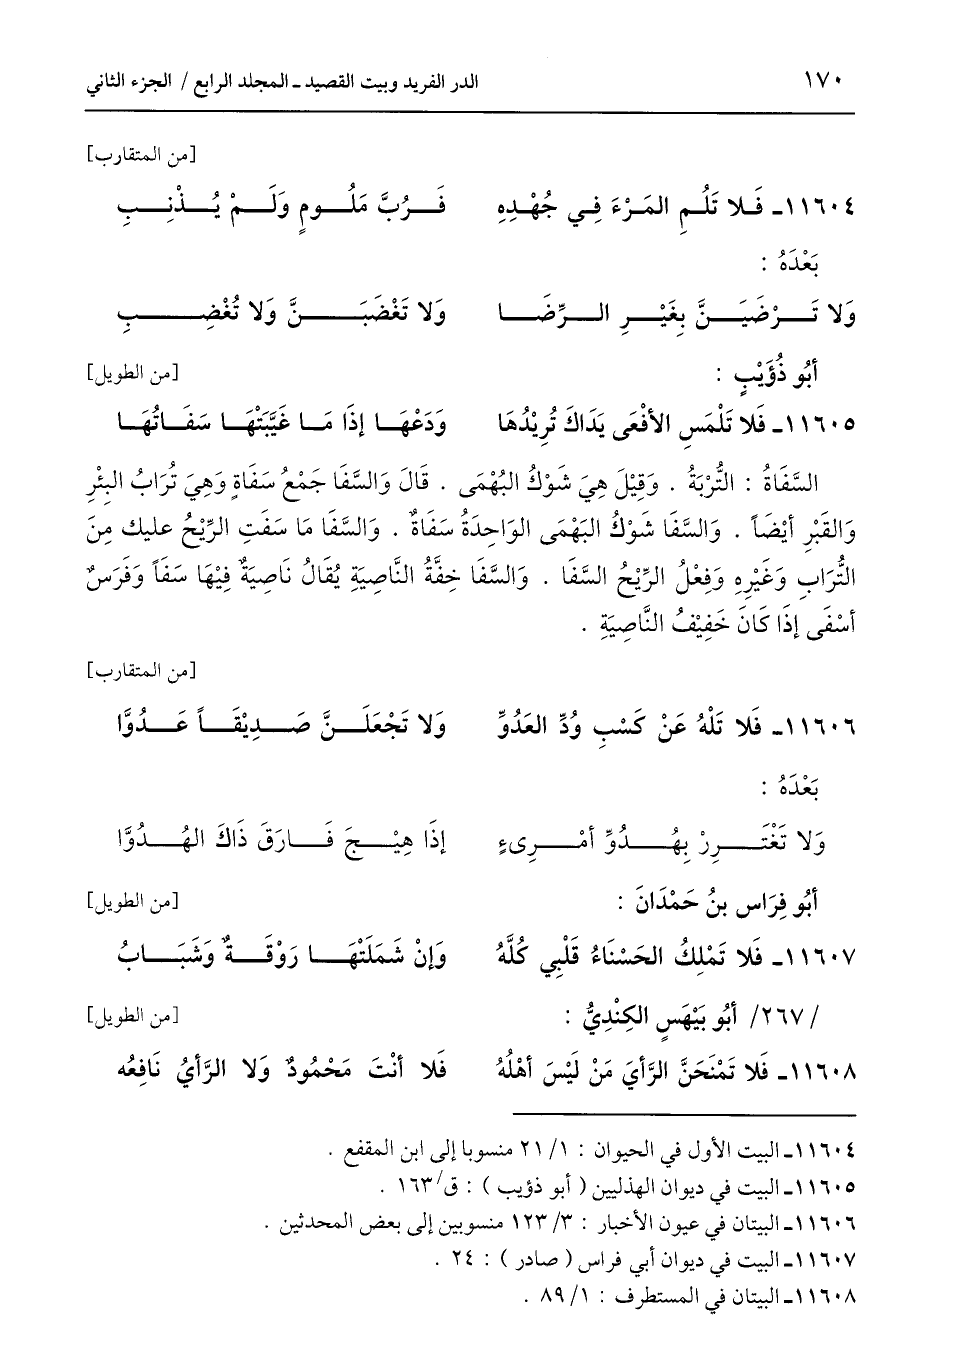 ١٧٠ الدر الفريد وبيت القصيد ـ المجلد الرابع / الجزء الثاني
[من المتقارب]
١١٦٠٤ـ فَلا تَلُمِ المَرْءَ فِي جُهْدِهِ فَرُبَّ مَلُومٍ وَلَمْ يُذْنِبِ
بَعْدَهُ :
وَلا تَرْضَيَنَّ بِغَيْرِ الرِّضَا وَلا تَغْضَبَنَّ وَلا تُغْضِبِ
أبُو ذُؤَيْبٍ : [من الطويل]
١١٦٠٥ـ فَلا تَلْمَسِ الأفْعَى يَدَاكَ تُرِيْدُهَا وَدَعْهَا إذَا مَا غَيَّبَتْهَا سَفَاتُهَا
السَّفَاةُ : التُّرْبَةُ . وَقِيْلَ هِيَ شَوْكُ البُهْمَى . قَالَ وَالسَّفَا جَمْعُ سَفَاةٍ وَهِيَ تُرَابُ البِئْرِ
وَالقَبْرِ أيْضَاً . وَالسَّفَا شَوْكُ البَهْمَى الوَاحِدَةُ سَفَاةٌ . وَالسَّفَا مَا سَفَتِ الرِّيْحُ عليك مِنَ
التُّرَابِ وَغَيْرِهِ وَفِعْلُ الرِّيْحُ السَّفَا . وَالسَّفَا خِفَّةُ النَّاصِيَةِ يُقَالُ نَاصِيَةٌ فِيْهَا سَفَاً وَفَرَسٌ
أسْفَى إذَا كَانَ خَفِيْفُ النَّاصِيَةِ .
[من المتقارب]
١١٦٠٦ـ فَلا تَلْهُ عَنْ كَسْبِ وُدِّ العَدُوِّ وَلا تَجْعَلَنَّ صَدِيْقَاً عَدُوَّا
بَعْدَهُ :
وَلا تَغْتَرِرْ بِهُدُوِّ أمْرِىءٍ إذَا هِيْجَ فَارَقَ ذَاكَ الهُدُوَّا
أبُو فِرَاس بنُ حَمْدَانَ : [من الطويل]
١١٦٠٧ـ فَلا تَمْلِكُ الحَسْنَاءُ قَلْبِي كُلَّهُ وَإنْ شَمَلَتْهَا رَوْقَةٌ وَشَبَابُ
/٢٦٧/ أبُو بَيْهَسٍ الكِنْدِيُّ : [من الطويل]
١١٦٠٨ـ فَلا تَمْنَحَنَّ الرَّأيَ مَنْ لَيْسَ أهْلُهُ فَلا أنْتَ مَحْمُودٌ وَلا الرَّأيُ نَافِعُه
١١٦٠٤ـ البيت الأول في الحيوان : ١/ ٢١ منسوبا إلى ابن المقفع .
١١٦٠٥ـ البيت في ديوان الهذليين ( أبو ذؤيب ) : ق/١٦٣ .
١١٦٠٦ـ البيتان في عيون الأخبار : ٣/ ١٢٣ منسوبين إلى بعض المحدثين .
١١٦٠٧ـ البيت في ديوان أبي فراس ( صادر ) : ٢٤ .
١١٦٠٨ـ البيتان في المستطرف : ١/ ٨٩ .